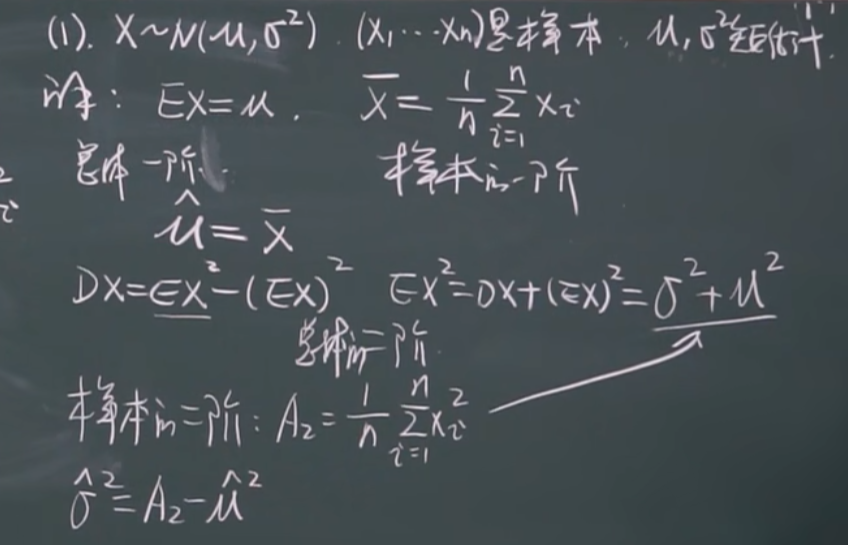 (1). X~N(μ,σ²). (X₁…Xn)是样本, μ,σ²矩估计.
解: EX=μ. X̄ = 1/n ∑ᵢ₌₁ⁿ Xᵢ
总体一阶. 样本的一阶
μ̂ = X̄
DX=EX²-(EX)² EX²=DX+(EX)²=σ²+μ²
总体的二阶.
样本的二阶: A₂ = 1/n ∑ᵢ₌₁ⁿ Xᵢ²
σ̂²=A₂-μ̂²